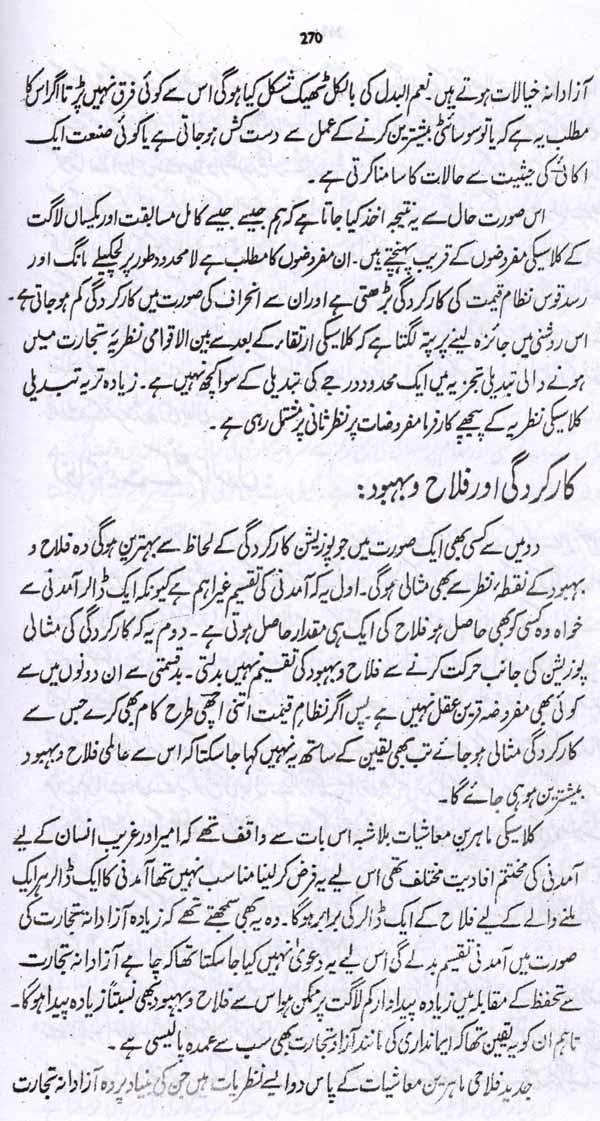 270
آزادانہ خیالات ہوتے ہیں۔ نعم البدل کی بالکل ٹھیک شکل کیا ہوگی اس سے کوئی فرق نہیں پڑتا اگر اس کا
مطلب یہ ہے کہ یا تو سوسائٹی بیشترین کرنے کے عمل سے دست کش ہوجاتی ہے یا کوئی صنعت ایک
اکائی کی حیثیت سے حالات کا سامنا کرتی ہے۔
اس صورت حال سے یہ نتیجہ اخذ کیا جاتا ہے کہ ہم جیسے جیسے کامل مسابقت اور یکساں لاگت
کے کلاسیکی مفروضوں کے قریب پہنچتے ہیں۔ ان مفروضوں کا مطلب ہے لامحدود طور پر لچکیلے مانگ اور
رسد قوس نظام قیمت کی کارکردگی بڑھتی ہے اور ان سے انحراف کی صورت میں کارکردگی کم ہوجاتی ہے۔
اس روشنی میں جائزہ لینے پر پتہ لگتا ہے کہ کلاسیکی ارتقاء کے بعد سے بین الاقوامی نظریۂ تجارت میں
ہونے والی تبدیلی تجزیہ میں ایک محدود درجے کی تبدیلی کے سوا کچھ نہیں ہے۔ زیادہ تر یہ تبدیلی
کلاسیکی نظریہ کے پیچھے کارفرما مفروضات پر نظر ثانی پر مشتمل رہی ہے۔
کارکردگی اور فلاح و بہبود:
دو میں سے کسی بھی ایک صورت میں جو پوزیشن کارکردگی کے لحاظ سے بہترین ہوگی وہ فلاح و
بہبود کے نقطۂ نظر سے بھی مثالی ہوگی۔ اول یہ کہ آمدنی کی تقسیم غیر اہم ہے کیونکہ ایک ڈالر آمدنی سے
خواہ وہ کسی کو بھی حاصل ہو فلاح کی ایک ہی مقدار حاصل ہوتی ہے۔ دوم یہ کہ کارکردگی کی مثالی
پوزیشن کی جانب حرکت کرنے سے فلاح و بہبود کی تقسیم نہیں بدلتی۔ بدقسمتی سے ان دونوں میں سے
کوئی بھی مفروضہ قرین عقل نہیں ہے۔ پس اگر نظام قیمت اتنی اچھی طرح کام بھی کرے جس سے
کارکردگی مثالی ہوجائے تب بھی یقین کے ساتھ یہ نہیں کہا جا سکتا کہ اس سے عالمی فلاح و بہبود
بیشترین ہو ہی جائے گا۔
کلاسیکی ماہرین معاشیات بلاشبہ اس بات سے واقف تھے کہ امیر اور غریب انسان کے لیے
آمدنی کی مختتم افادیت مختلف تھی اس لیے یہ فرض کر لینا مناسب نہیں تھا آمدنی کا ایک ڈالر ہر ایک
ملنے والے کے لیے فلاح کے ایک ڈالر کی برابر ہوگا۔ وہ یہ بھی سمجھتے تھے کہ زیادہ آزادانہ تجارت کی
صورت میں آمدنی تقسیم بدلے گی اس لیے یہ دعویٰ نہیں کیا جا سکتا تھا کہ چاہے آزادانہ تجارت
سے تحفظ کے مقابلہ میں زیادہ پیداوار کم لاگت پر ممکن ہو اس سے فلاح و بہبود بھی نسبتاً زیادہ پیدا ہوگا۔
تاہم ان کو یہ یقین تھا کہ ایمانداری کی مانند آزاد تجارت بھی سب سے عمدہ پالیسی ہے۔
جدید فلاحی ماہرین معاشیات کے پاس دو ایسے نظریات ہیں جن کی بنیاد پر وہ آزادانہ تجارت